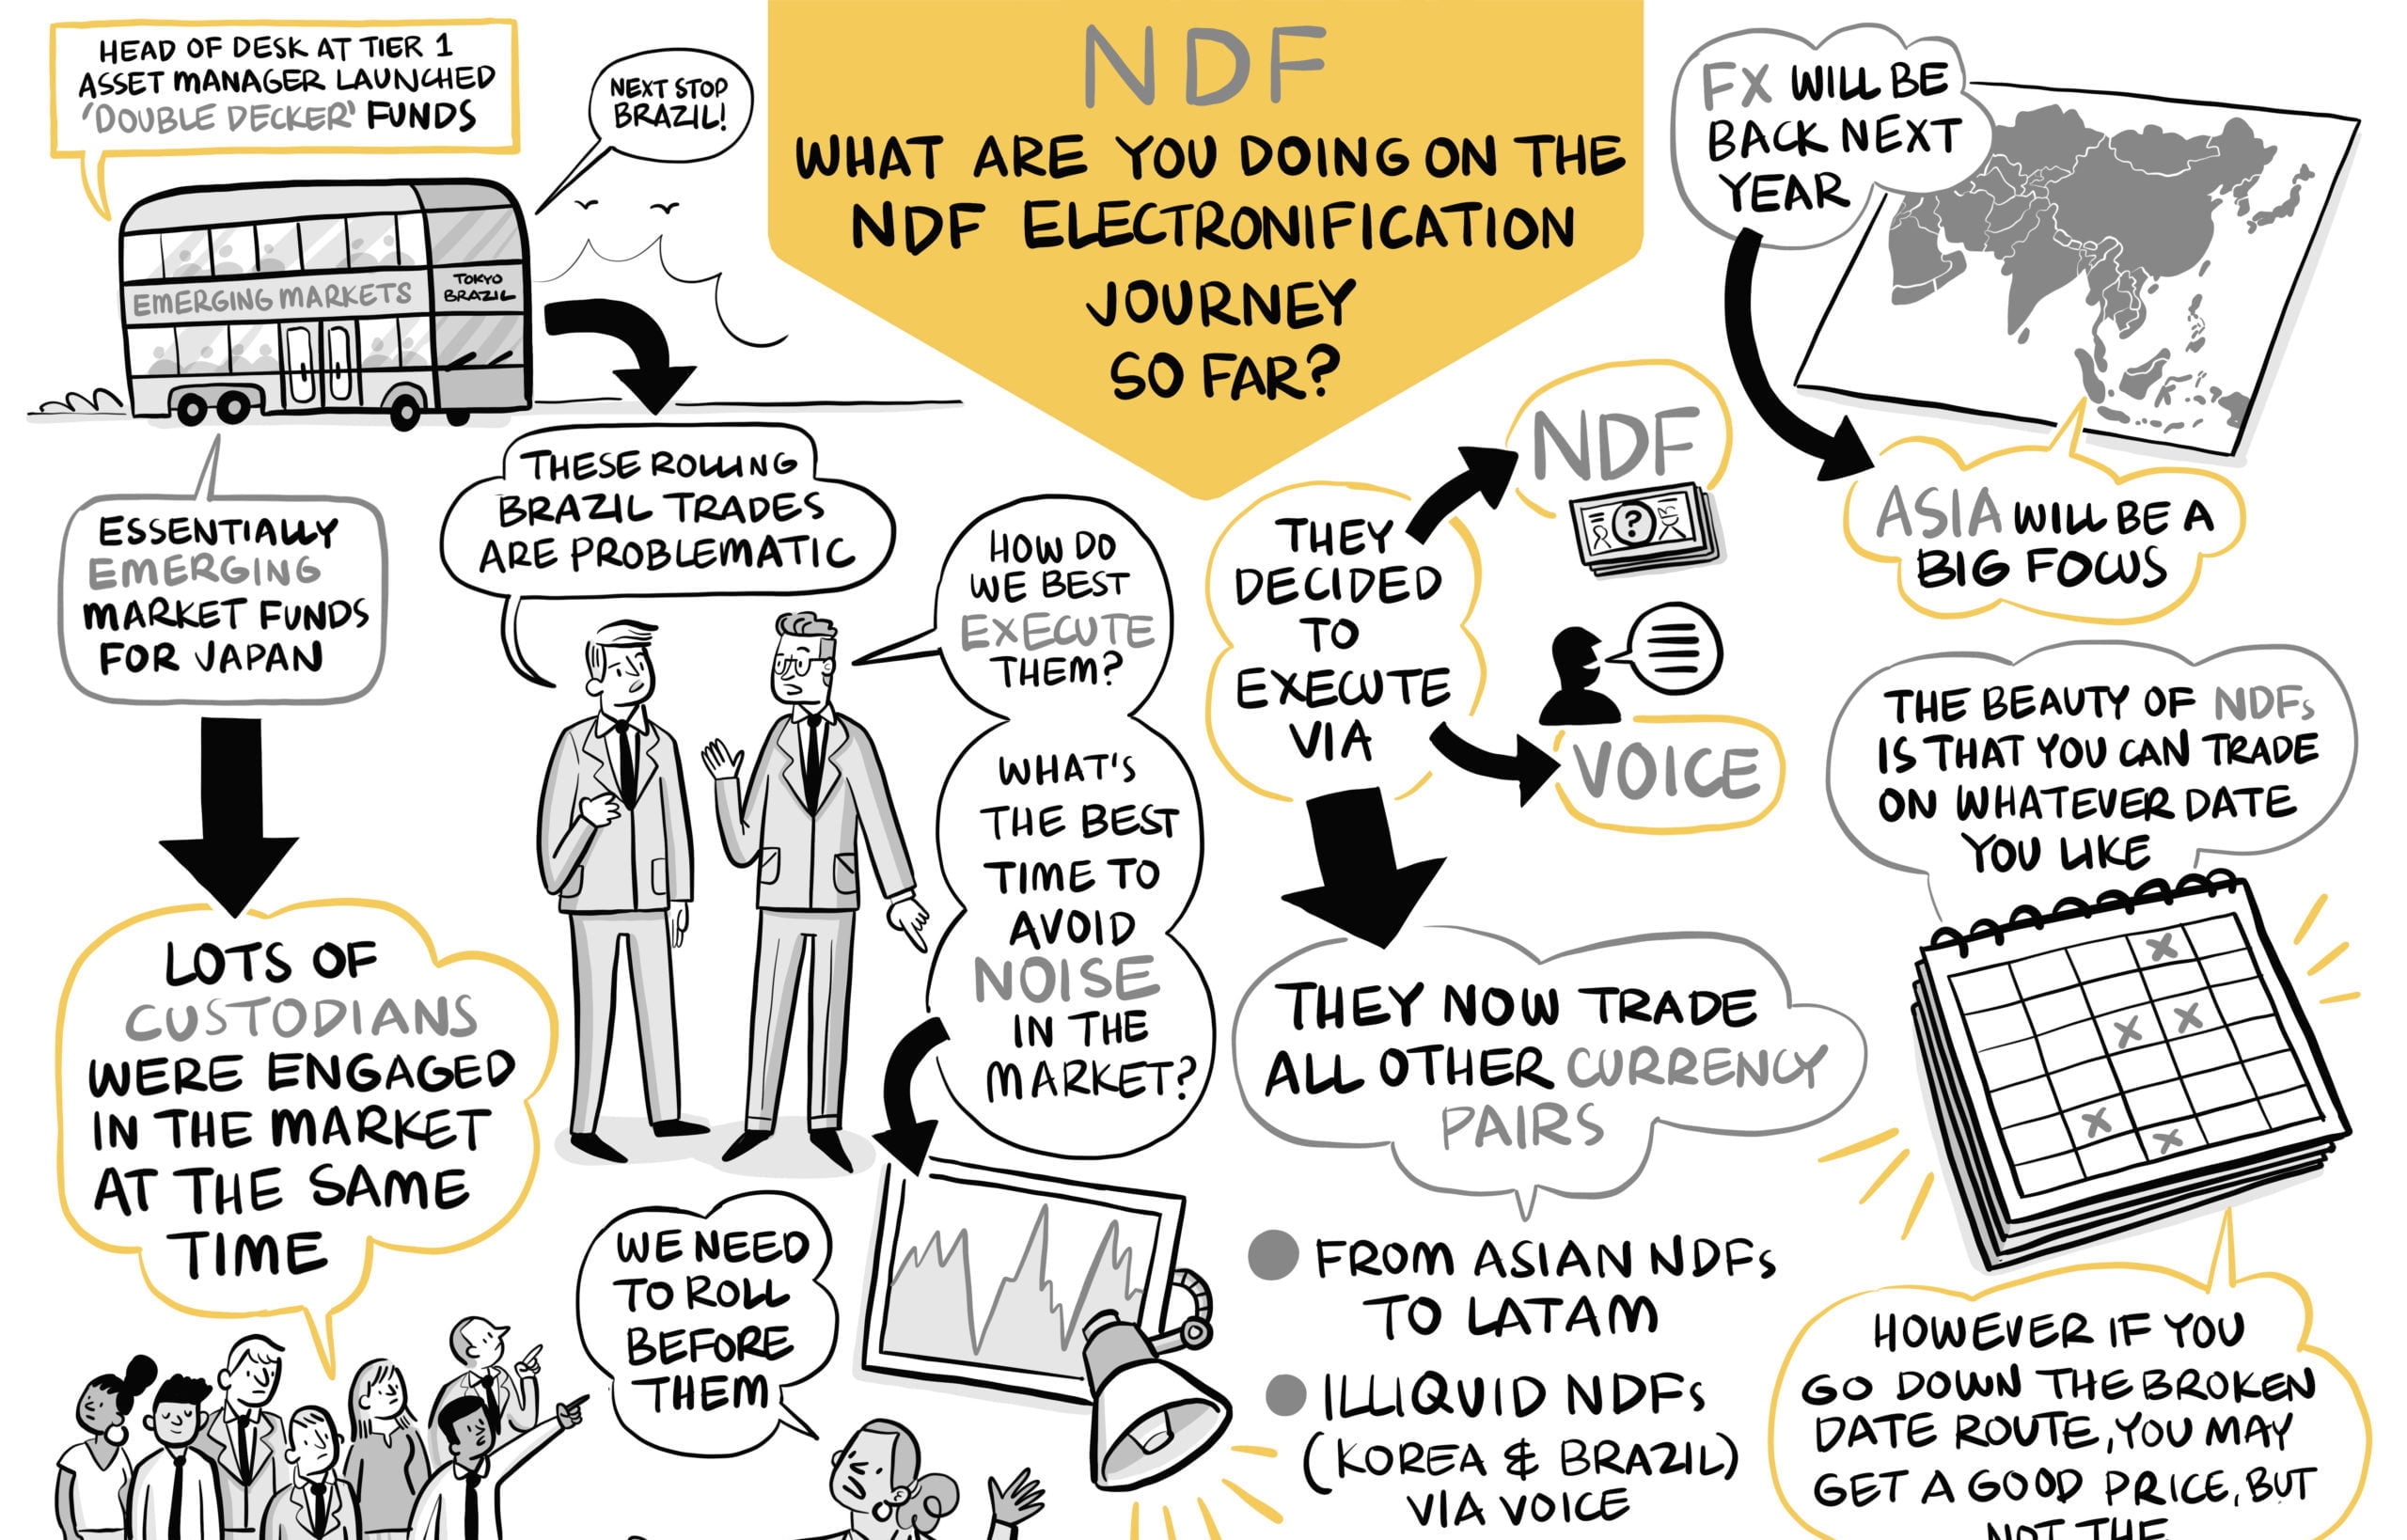 HEAD OF DESK AT TIER 1
ASSET MANAGER LAUNCHED
'DOUBLE DECKER' FUNDS
NEXT STOP
BRAZIL!
EMERGING MARKETS
TOKYO
BRAZIL
ESSENTIALLY
EMERGING
MARKET FUNDS
FOR JAPAN
LOTS OF
CUSTODIANS
WERE ENGAGED
IN THE MARKET
AT THE SAME
TIME
NDF
WHAT ARE YOU DOING ON THE
NDF ELECTRONIFICATION
JOURNEY
SO FAR?
THESE ROLLING
BRAZIL TRADES
ARE PROBLEMATIC
HOW DO
WE BEST
EXECUTE
THEM?
WHAT'S
THE BEST
TIME TO
AVOID
NOISE
IN THE
MARKET?
WE NEED
TO ROLL
BEFORE
THEM
THEY
DECIDED
TO
EXECUTE
VIA
NDF
?
VOICE
THEY NOW TRADE
ALL OTHER CURRENCY
PAIRS
FROM ASIAN NDFs
TO LATAM
ILLIQUID NDFs
(KOREA & BRAZIL)
VIA VOICE
FX WILL BE
BACK NEXT
YEAR
ASIA WILL BE A
BIG FOCUS
THE BEAUTY OF NDFs
IS THAT YOU CAN TRADE
ON WHATEVER DATE
YOU LIKE
HOWEVER IF YOU
GO DOWN THE BROKEN
DATE ROUTE, YOU MAY
GET A GOOD PRICE, BUT
NOT THE